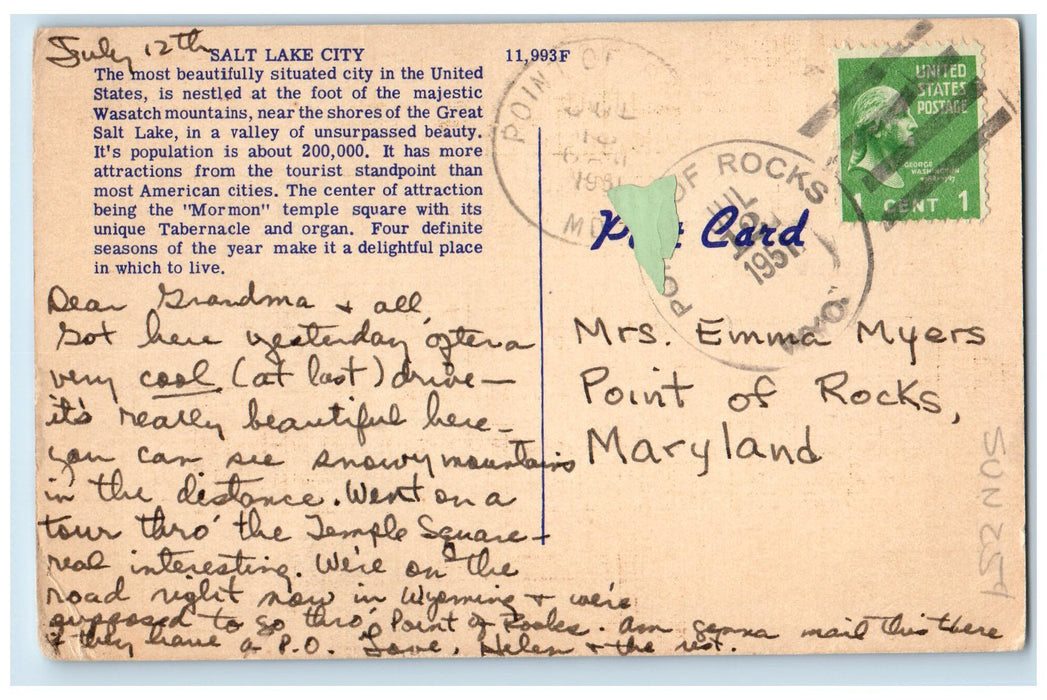 July 12th
SALT LAKE CITY
The most beautifully situated city in the United
States, is nestled at the foot of the majestic
Wasatch mountains, near the shores of the Great
Salt Lake, in a valley of unsurpassed beauty.
It's population is about 200,000. It has more
attractions from the tourist standpoint than
most American cities. The center of attraction
being the "Mormon" temple square with its
unique Tabernacle and organ. Four definite
seasons of the year make it a delightful place
in which to live.
Dear Grandma & all,
Got here yesterday after a
very cool (at last) drive—
it's really beautiful here—
you can see snowy mountains
in the distance. Went on a
tour thro' the Temple Square—
real interesting. We're on the
road right now in Wyoming & we're
supposed to go thro' Point of Rocks. Am gonna mail this there
if they have a P.O. Love, Helen & the rest.
11,993F
POINT OF
JUL
1951
MD
OF ROCKS
JUL
12
1951
WYO.
Card
UNITED
STATES
POSTAGE
GEORGE
WASHINGTON
1 CENT 1
Mrs. Emma Myers
Point of Rocks,
Maryland